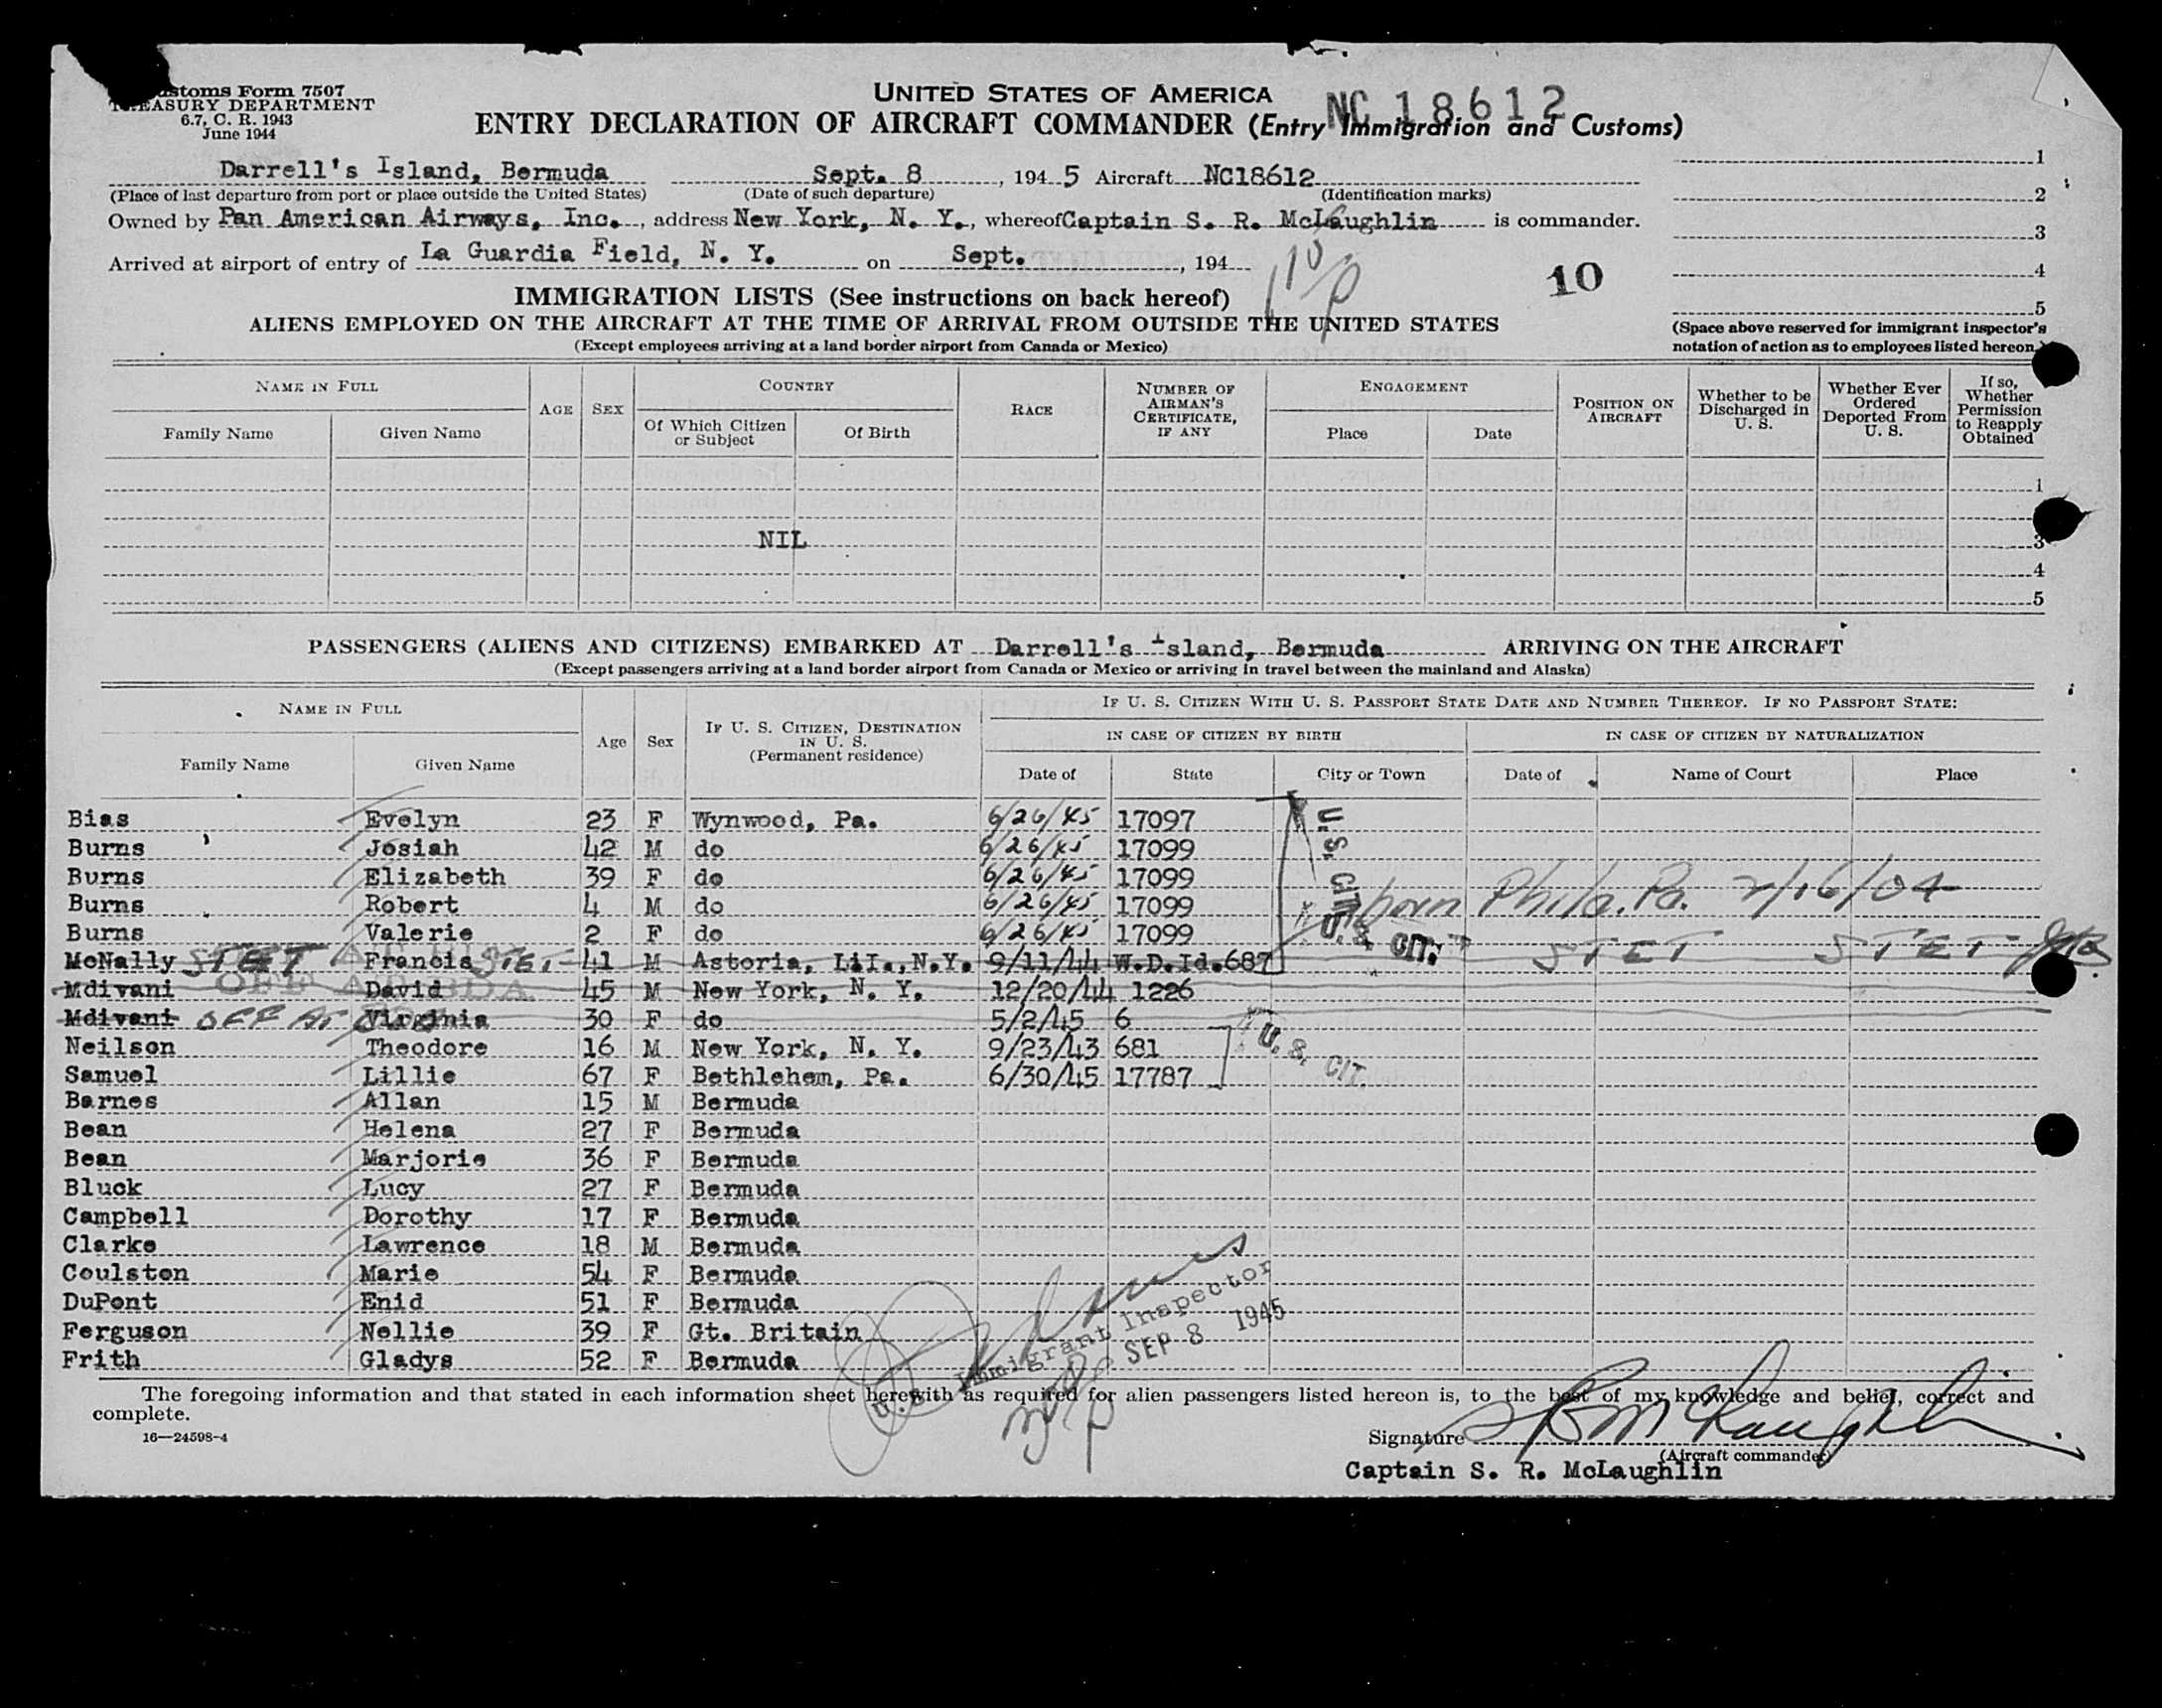 Customs Form 7507
TREASURY DEPARTMENT
6.7, C. R. 1943
June 1944
UNITED STATES OF AMERICA
NC 18612
ENTRY DECLARATION OF AIRCRAFT COMMANDER (Entry Immigration and Customs)
Darrell's Island, Bermuda Sept. 8, 194 5 Aircraft NC18612
(Place of last departure from port or place outside the United States) (Date of such departure) (Identification marks)
Owned by Pan American Airways, Inc., address New York, N. Y., whereof Captain S. R. McLaughlin is commander.
Arrived at airport of entry of La Guardia Field, N. Y. on Sept., 194
10
1
2
3
4
5
(Space above reserved for immigrant inspector's notation of action as to employees listed hereon.)
IMMIGRATION LISTS (See instructions on back hereof)
ALIENS EMPLOYED ON THE AIRCRAFT AT THE TIME OF ARRIVAL FROM OUTSIDE THE UNITED STATES
(Except employees arriving at a land border airport from Canada or Mexico)
NAME IN FULL AGE SEX COUNTRY RACE NUMBER OF AIRMAN'S CERTIFICATE, IF ANY ENGAGEMENT POSITION ON AIRCRAFT Whether to be Discharged in U. S. Whether Ever Ordered Deported From U. S. If so, Whether Permission to Reapply Obtained
Family Name Given Name Of Which Citizen or Subject Of Birth Place Date
1
NIL 3
4
5
PASSENGERS (ALIENS AND CITIZENS) EMBARKED AT Darrell's Island, Bermuda ARRIVING ON THE AIRCRAFT
(Except passengers arriving at a land border airport from Canada or Mexico or arriving in travel between the mainland and Alaska)
NAME IN FULL Age Sex IF U. S. CITIZEN, DESTINATION IN U. S. (Permanent residence) IF U. S. CITIZEN WITH U. S. PASSPORT STATE DATE AND NUMBER THEREOF. IF NO PASSPORT STATE:
IN CASE OF CITIZEN BY BIRTH IN CASE OF CITIZEN BY NATURALIZATION
Family Name Given Name Date of State City or Town Date of Name of Court Place
Bias Evelyn 23 F Wynwood, Pa. 6/26/45 17097 U. S. CIT.
Burns Josiah 42 M do 6/26/45 17099
Burns Elizabeth 39 F do 6/26/45 17099
Burns Robert 4 M do 6/26/45 17099 born Phila. Pa. 2/16/04
Burns Valerie 2 F do 6/26/45 17099 U. S. CIT.
McNally STET Francis STET 41 M Astoria, L.I., N.Y. 9/11/44 W.D.Id.687 STET STET
Mdivani OFF AT BDA. David 45 M New York, N. Y. 12/20/44 1226
Mdivani OFF AT BDA Virginia 30 F do 5/2/45 6
Neilson Theodore 16 M New York, N. Y. 9/23/43 681 U. S. CIT.
Samuel Lillie 67 F Bethlehem, Pa. 6/30/45 17787
Barnes Allan 15 M Bermuda
Bean Helena 27 F Bermuda
Bean Marjorie 36 F Bermuda
Bluck Lucy 27 F Bermuda
Campbell Dorothy 17 F Bermuda
Clarke Lawrence 18 M Bermuda
Coulston Marie 54 F Bermuda
DuPont Enid 51 F Bermuda
Ferguson Nellie 39 F Gt. Britain
Frith Gladys 52 F Bermuda
U.S. Immigrant Inspector
SEP 8 1945
The foregoing information and that stated in each information sheet herewith as required for alien passengers listed hereon is, to the best of my knowledge and belief, correct and
complete.
16—24598-4
Signature S R McLaughlin
(Aircraft commander)
Captain S. R. McLaughlin